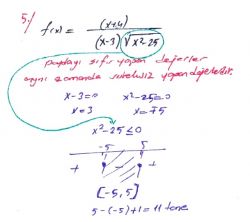 5.) f(x) = (x+4) / (x-3) √x²-25
paydayı sıfır yapan değerler
aynı zamanda süreksiz yapan değerlerdir.
x-3=0    x²-25=0
x=3    x=±5
x²-25≤0
-5    5
+    -    +
[-5,5]
5-(-5)+1=11 tane